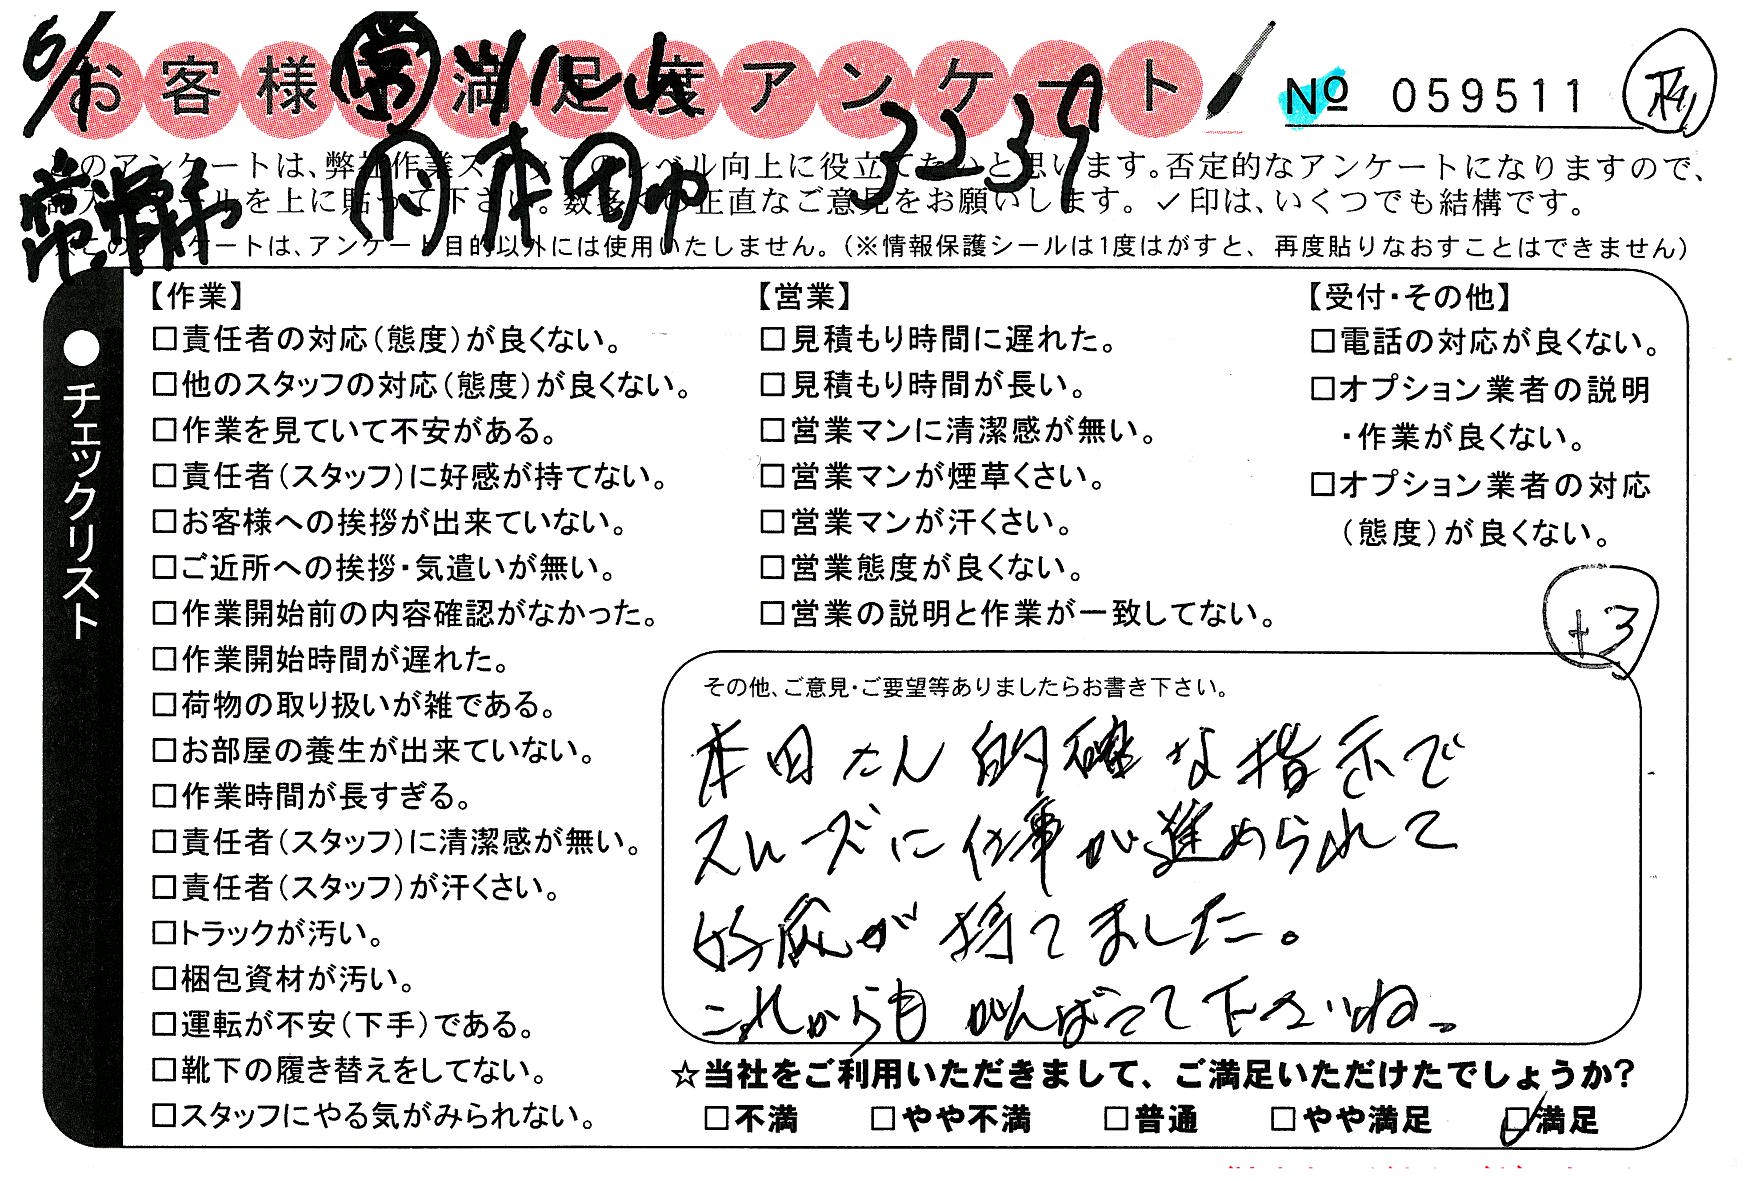 6/1
お客様満足度アンケート
№ 059511
3237
このアンケートは、弊社作業スタッフのレベル向上に役立てたいと思います。否定的なアンケートになりますので、
記入後シールを上に貼って下さい。数多くの正直なご意見をお願いします。✓印は、いくつでも結構です。
※このアンケートは、アンケート目的以外には使用いたしません。（※情報保護シールは1度はがすと、再度貼りなおすことはできません）
●チェックリスト
【作業】
□責任者の対応（態度）が良くない。
□他のスタッフの対応（態度）が良くない。
□作業を見ていて不安がある。
□責任者（スタッフ）に好感が持てない。
□お客様への挨拶が出来ていない。
□ご近所への挨拶・気遣いが無い。
□作業開始前の内容確認がなかった。
□作業開始時間が遅れた。
□荷物の取り扱いが雑である。
□お部屋の養生が出来ていない。
□作業時間が長すぎる。
□責任者（スタッフ）に清潔感が無い。
□責任者（スタッフ）が汗くさい。
□トラックが汚い。
□梱包資材が汚い。
□運転が不安（下手）である。
□靴下の履き替えをしてない。
□スタッフにやる気がみられない。
【営業】
□見積もり時間に遅れた。
□見積もり時間が長い。
□営業マンに清潔感が無い。
□営業マンが煙草くさい。
□営業マンが汗くさい。
□営業態度が良くない。
□営業の説明と作業が一致してない。
【受付・その他】
□電話の対応が良くない。
□オプション業者の説明
・作業が良くない。
□オプション業者の対応
（態度）が良くない。
+3
その他、ご意見・ご要望等ありましたらお書き下さい。
本田さん的確な指示で
スムーズに仕事が進められて
好感が持てました。
これからもがんばって下さいね。
☆当社をご利用いただきまして、ご満足いただけたでしょうか？
□不満 □やや不満 □普通 □やや満足 ☑満足